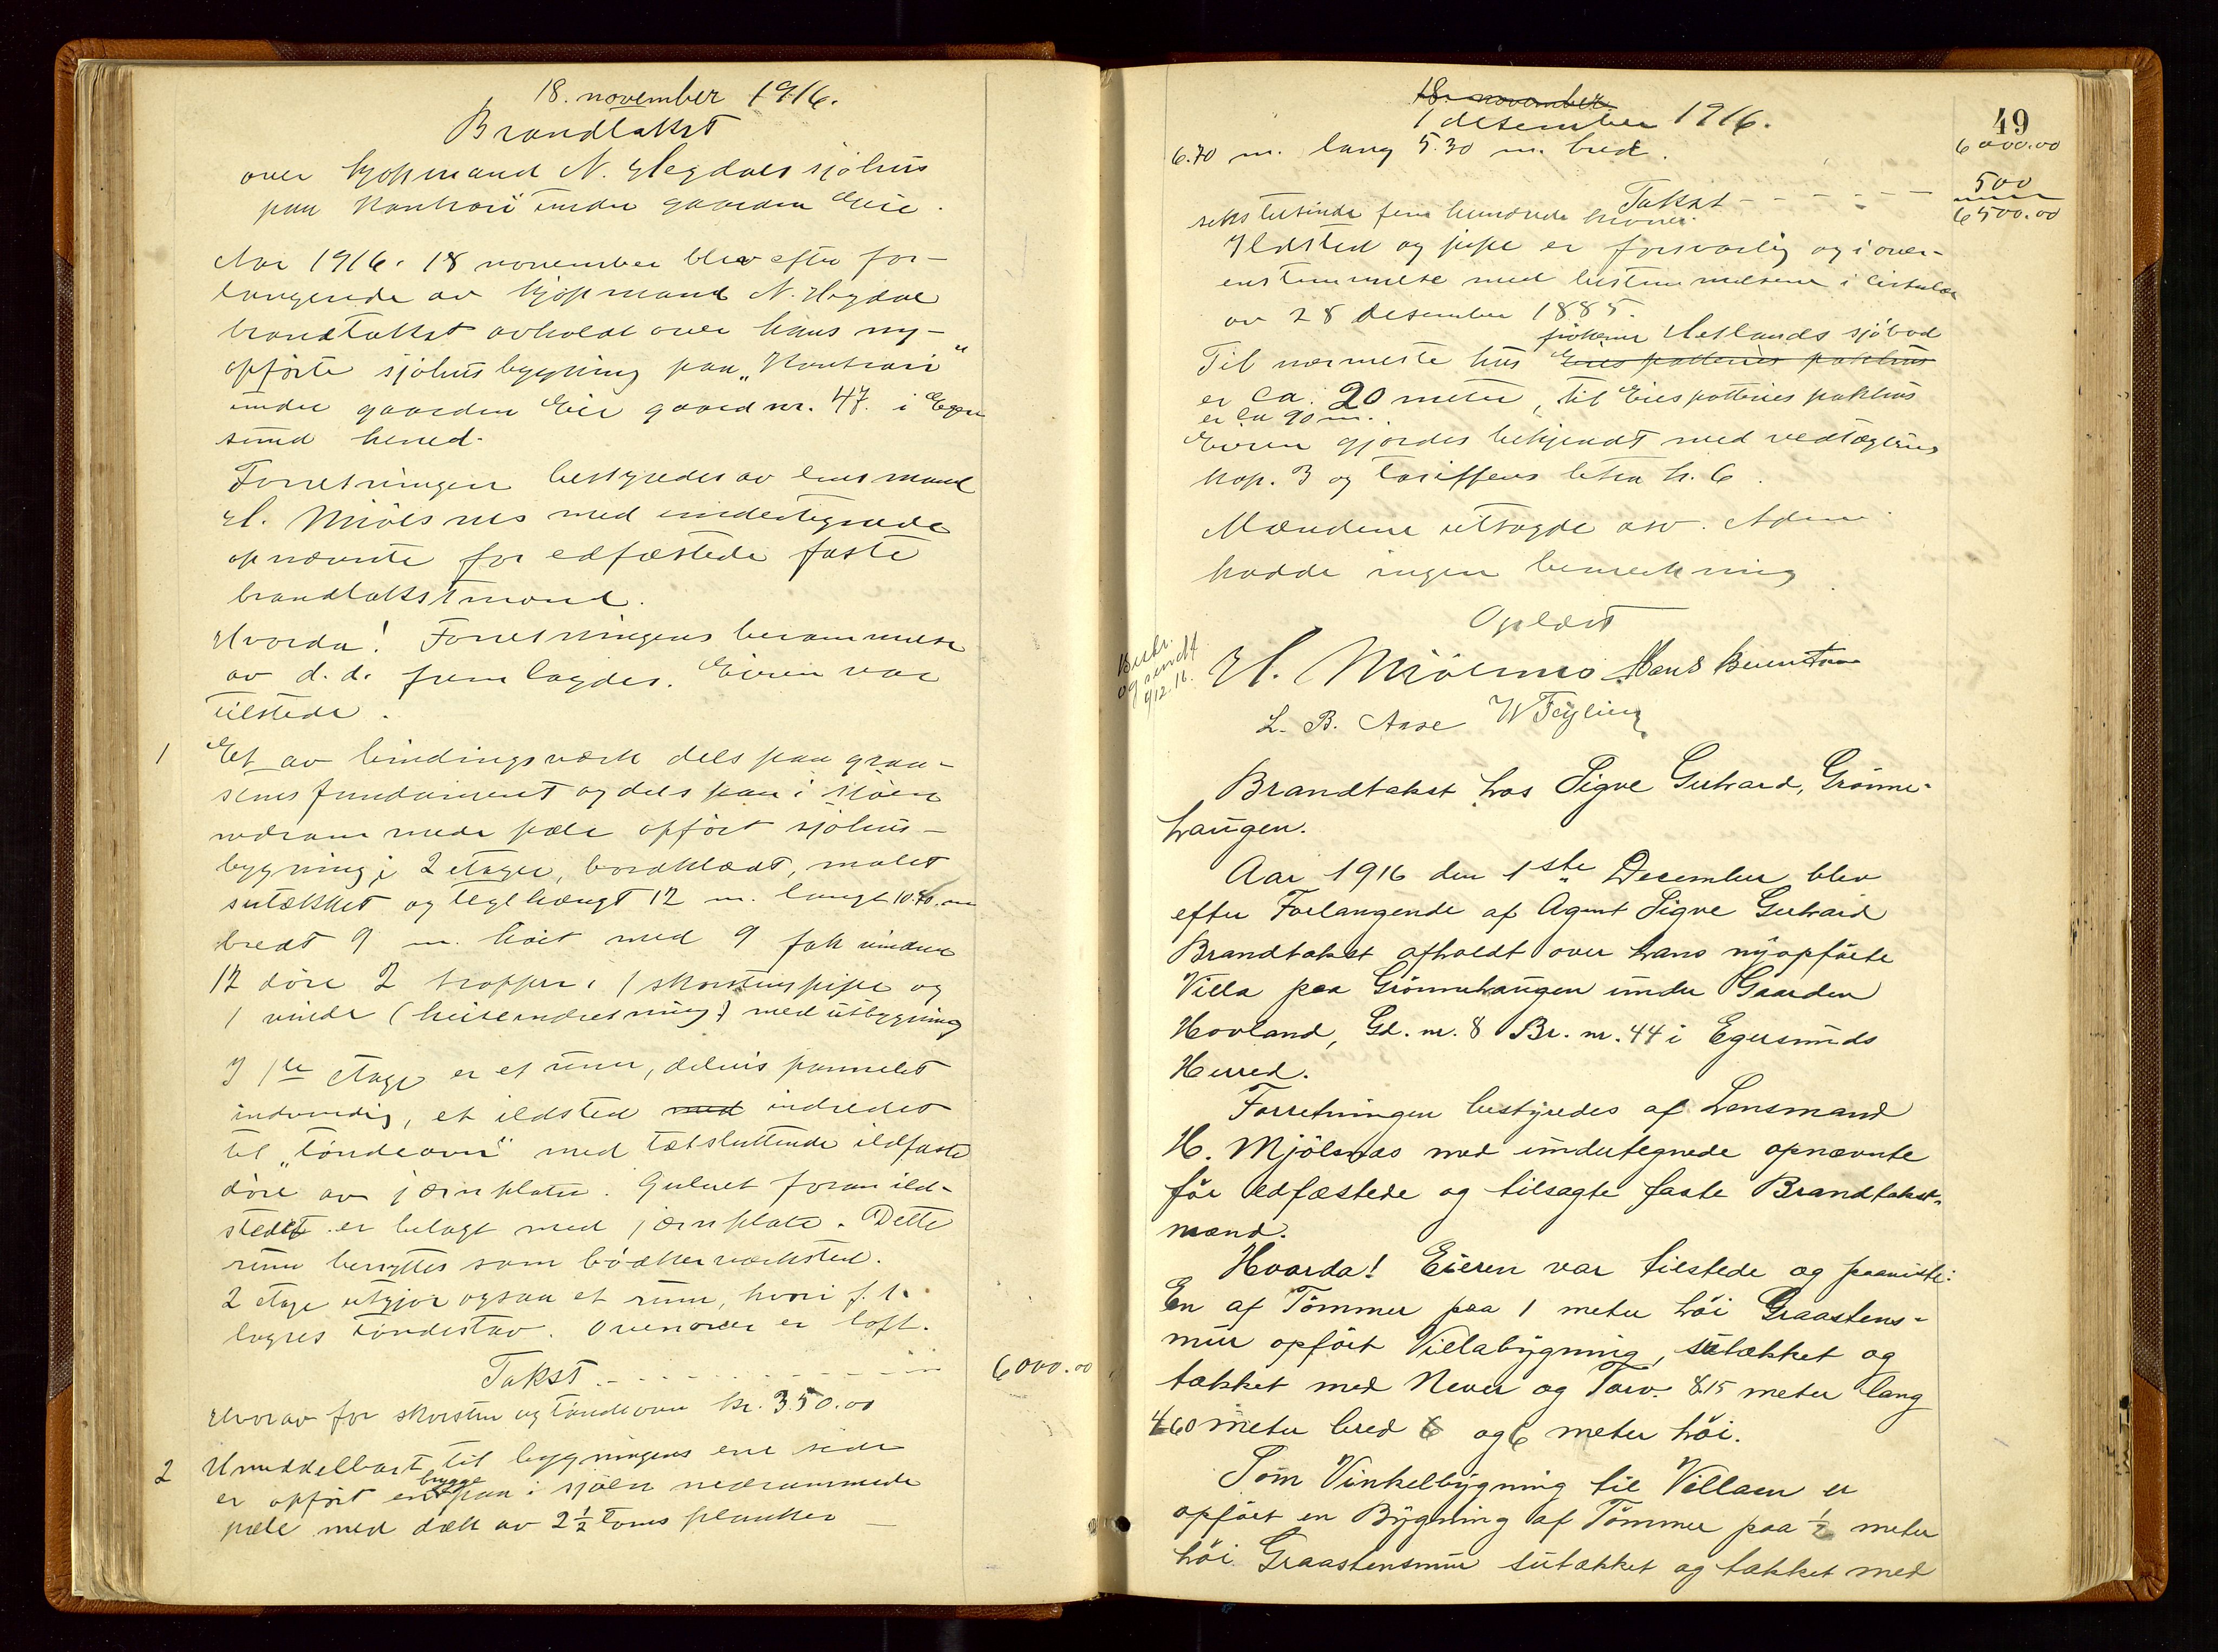 18. november 1916.
Brandtakst
over kjøpmand N. Hegdals sjøhus
paa Kontrari under gaarden Eie.
Aar 1916. 18 november blev efter for-
langende av kjøpmand N. Hegdal
brandtakst avholdt over hans ny-
opførte sjøhusbygning paa „Kontrari"
under gaarden Eie gaard nr. 47. i Eger
sund herred.
Forretningen bestyredes av lensmand
H. Mjölsnes med undertegnede
opnævnte før edfæstede faste
brandtakstmænd.
Hvorda! Forretningens berammelse
av d.d. fremlagdes. Eieren var
tilstede.
1 Et av bindingsværk dels paa graa-
stensfundament og dels paa i sjöen
nedrammede pæle opfört sjöhus-
bygning i 2 etager, bordklædt, malet
sutækket og teglhængt 12 m. langt 10.70 m
bredt 9 m. höit med 9 fak vinduer
12 döre 2 trapper, 1 skorstenspipe og
1 vinde (heiseindretning) med utbygning
I 1ste etage er et rum, delvis pannelet
indvendig, et ildsted med indredet
til „töndeovn" med tætsluttende ildfaste
döre av jernplater. Gulvet foran ild-
stedet er belagt med jernplate. Dette
rum benyttes som bödkerverksted.
2 etage utgjör ogsaa et rum, hvori f.t.
lagres töndestav. Ovenover er loft.
Takst - - - - - - 6000.00
Hvorav for skorsten og töndeovn kr. 350.00
2 Umiddelbart til bygningens ene side
er opfört en brygge paa i sjöen nedrammede
pæle med dæk av 2 1/2 toms planker
49
18. november
1 desember 1916.
6.70 m. lang 5.30 m. bred. 6000.00
Takst - - - - - 500
seks tusinde fem hundrede kroner. 6500.00
Ildsted og pipe er forsvarlig og i over-
enstemmelse med bestemmelsene i cirkulær
av 28 desember 1885.
frökene Hetlands sjöbod
Til nærmeste hus Eies potteries pakhus
er ca. 20 meter, til Eies potteries pakhus
er ca 90 m.
Eieren gjordes bekjendt med vedtægtens
kap. 3 og tariffens litra h. 6.
Mændene utsagde osv. Ingen
hadde ingen bemerkning
Oplæst
Beskr.
og sendt
9/12.16.
H. Mjölsnes Hans Berentsen
L. B. Aase W Feyling
Brandtakst hos Sigve Gerhard, Grönne-
haugen.
Aar 1916 den 1ste December blev
efter Forlangende af Agent Sigve Gerhard
Brandtakst afholdt over hans nyopförte
Villa paa Grönnehaugen under Gaarden
Hovland, Gd. nr. 8 Br. nr. 44 i Egersunds
Herred.
Forretningen bestyredes af Lensmand
H. Mjölsnæs med undertegnede opnævnte
för edfæstede og tilsagte faste Brandtakst-
mænd.
Hvorda! Eieren var tilstede og paaviste:
En af Tömmer paa 1 meter höi Graastens-
mur opfört Villabygning, sutækket og
tækket med Never og Torv. 8.15 meter lang
4.60 meter bred 6 og 6 meter höi.
Som Vinkelbygning til Villaen er
opfört en Bygning af Tömmer paa 1/2 meter
höi Graastensmur sutækket og tækket med